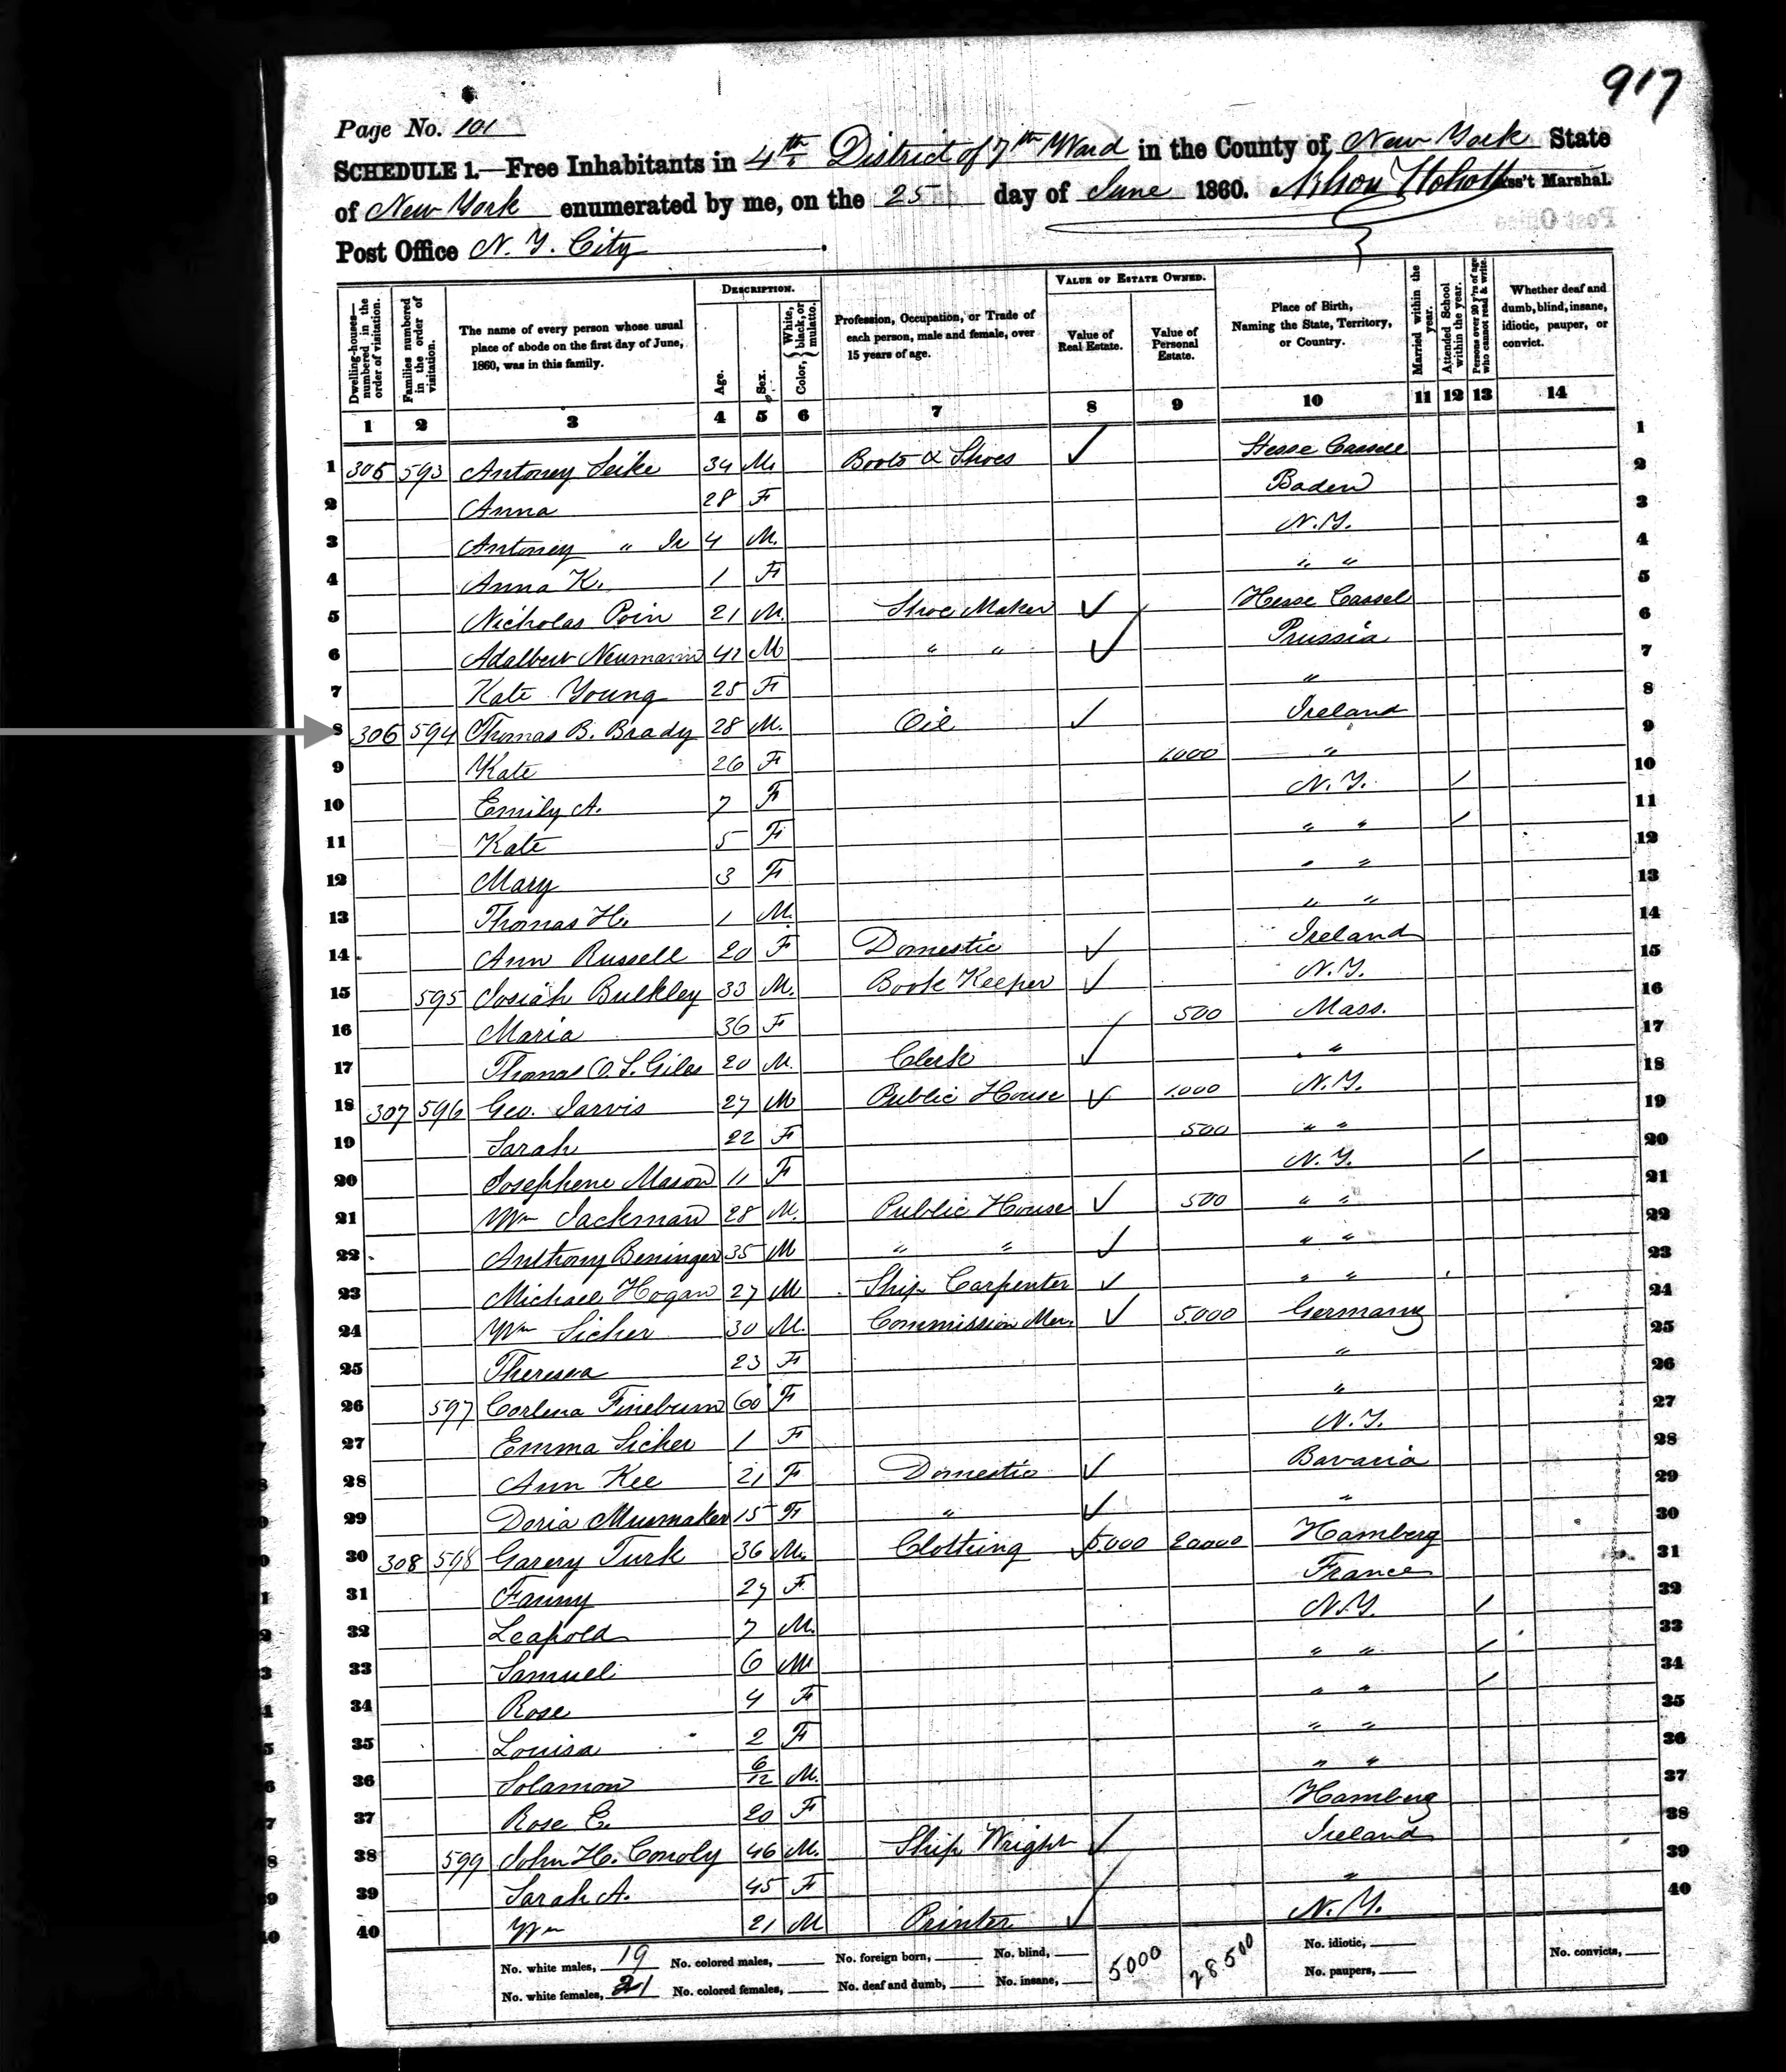 917
Page No. 101
SCHEDULE 1.—Free Inhabitants in 4th District of 7th Ward in the County of New York State
of New York enumerated by me, on the 25 day of June 1860. Ass't Marshal.
Post Office N. Y. City
Post Office
DESCRIPTION. VALUE OF ESTATE OWNED.
Dwelling-houses—numbered in the order of visitation. Families numbered in the order of visitation. The name of every person whose usual place of abode on the first day of June, 1860, was in this family. Age. Sex. Color, { White, black, or mulatto. Profession, Occupation, or Trade of each person, male and female, over 15 years of age. Value of Real Estate. Value of Personal Estate. Place of Birth, Naming the State, Territory, or Country. Married within the year. Attended School within the year. Persons over 20 y'rs of age who cannot read & write. Whether deaf and dumb, blind, insane, idiotic, pauper, or convict.
1 2 3 4 5 6 7 8 9 10 11 12 13 14
1 305 593 Antoney Seike 34 M. Boots & Shoes ✓ Hesse Cassel 1
2 Anna 28 F Baden 2
3 Antoney " Jr 4 M. N.Y. 3
4 Anna K. 1 F " " 4
5 Nicholas Poin 21 M. Shoe Maker ✓ Hesse Cassel 5
6 Adalbert Neumann 41 M " " ✓ Prussia 6
7 Kate Young 25 F " 7
8 306 594 Thomas B. Brady 28 M. Oil ✓ Ireland 8
9 Kate 26 F 1000 " 9
10 Emily A. 7 F N.Y. / 10
11 Kate 5 F " " / 11
12 Mary 3 F " " 12
13 Thomas H. 1 M. " " 13
14 Ann Russell 20 F Domestic ✓ Ireland 14
15 595 Josiah Bulkley 33 M. Book Keeper ✓ N.Y. 15
16 Maria 36 F 500 Mass. 16
17 Thomas O. S. Giles 20 M. Clerk ✓ " 17
18 307 596 Geo. Jarvis 27 M Public House ✓ 1000 N.Y. 18
19 Sarah 22 F 500 " " 19
20 Josephene Mason 11 F N.Y. / 20
21 Wm Jackman 28 M. Public House ✓ 500 " " 21
22 Anthony Beninger 35 M " " ✓ " " 22
23 Michael Hogan 27 M Ship Carpenter ✓ " " 23
24 Wm Sicher 30 M. Commission Mer. ✓ 5000 Germany 24
25 Theresa 23 F " 25
26 597 Corlena Fineburn 60 F " 26
27 Emma Sicher 1 F N.Y. 27
28 Ann Kee 21 F Domestic ✓ Bavaria 28
29 Doria Musmaker 15 F " ✓ " 29
30 308 598 Garery Turk 36 M. Clothing ✓ 5000 20000 Hamberg 30
31 Fanny 27 F France 31
32 Leapold 7 M. N.Y. / 32
33 Samuel 6 M " " / 33
34 Rose 4 F " " / 34
35 Louisa 2 F " " 35
36 Solamon 6/12 M. " " 36
37 Rose E. 20 F Hamberg 37
38 599 John H. Conoly 46 M. Ship Wright ✓ Ireland 38
39 Sarah A. 45 F " 39
40 Wm 21 M Printer ✓ N.Y. 40
No. white males, 19 No. colored males, No. foreign born, No. blind, 5000 28.500 No. idiotic, No. convicts,
No. white females, 21 No. colored females, No. deaf and dumb, No. insane, No. paupers,